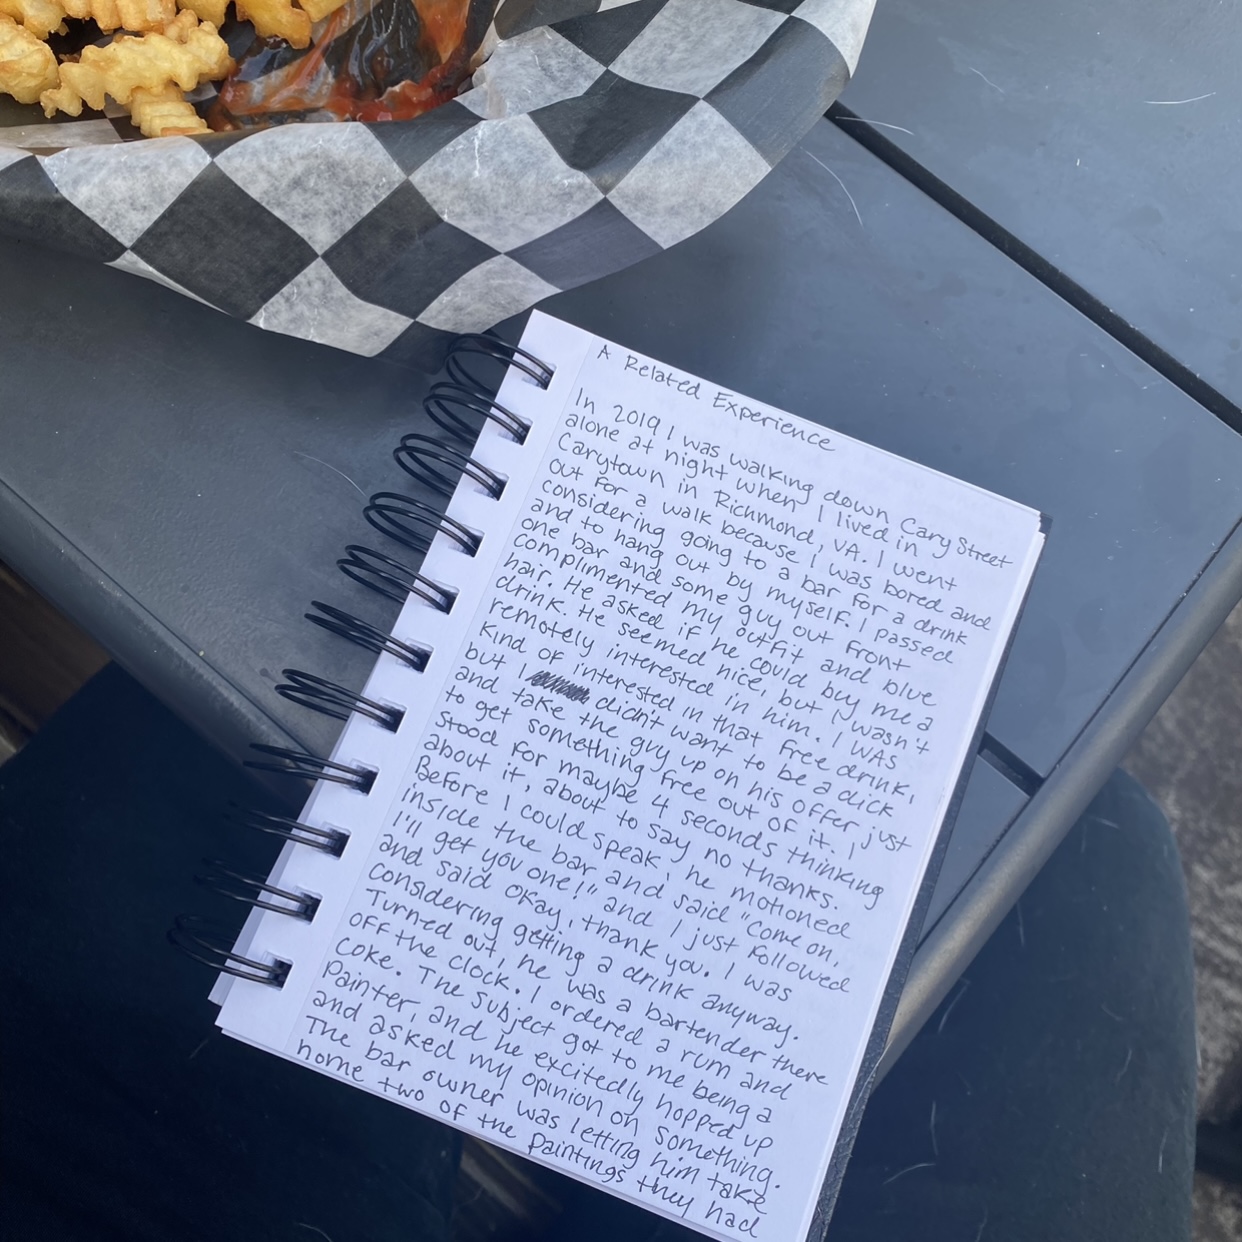 A Related Experience
In 2019 I was walking down Cary Street
alone at night when I lived in
Carytown in Richmond, VA. I went
out for a walk because I was bored and
considering going to a bar for a drink
and to hang out by myself. I passed
one bar and some guy out front
complimented my outfit and blue
hair. He asked if he could by me a
drink. He seemed nice, but I wasn't
remotely interested in him. I WAS
kind of interested in that free drink,
but I didn't want to be a dick
and take the guy up on his offer just
to get something free out of it. I
stood for maybe 4 seconds thinking
about it, about to say no thanks.
Before I could speak, he motioned
inside the bar and said "Come on,
I'll get you one!" and I just followed
and said okay, thank you. I was
considering getting a drink anyway.
Turned out, he was a bartender there
off the clock. I ordered a rum and
coke. The subject got to me being a
painter, and he excitedly hopped up
and asked my opinion on something.
The bar owner was letting him take
home two of the paintings they had